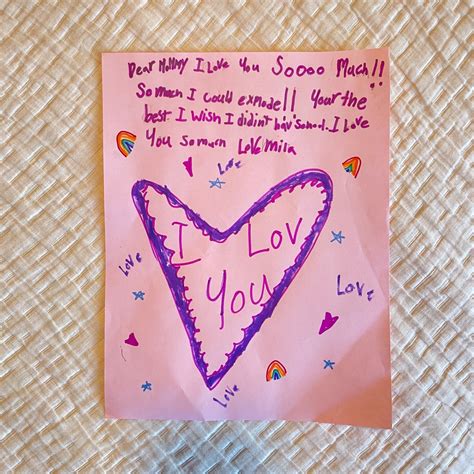 Dear Mommy I Love You Soooo Much!!
So much I could explode!! Your the
best. I wish I didint hav school. I love
You so much Love Mila
Love
I Lov
You
Love
Love
Love